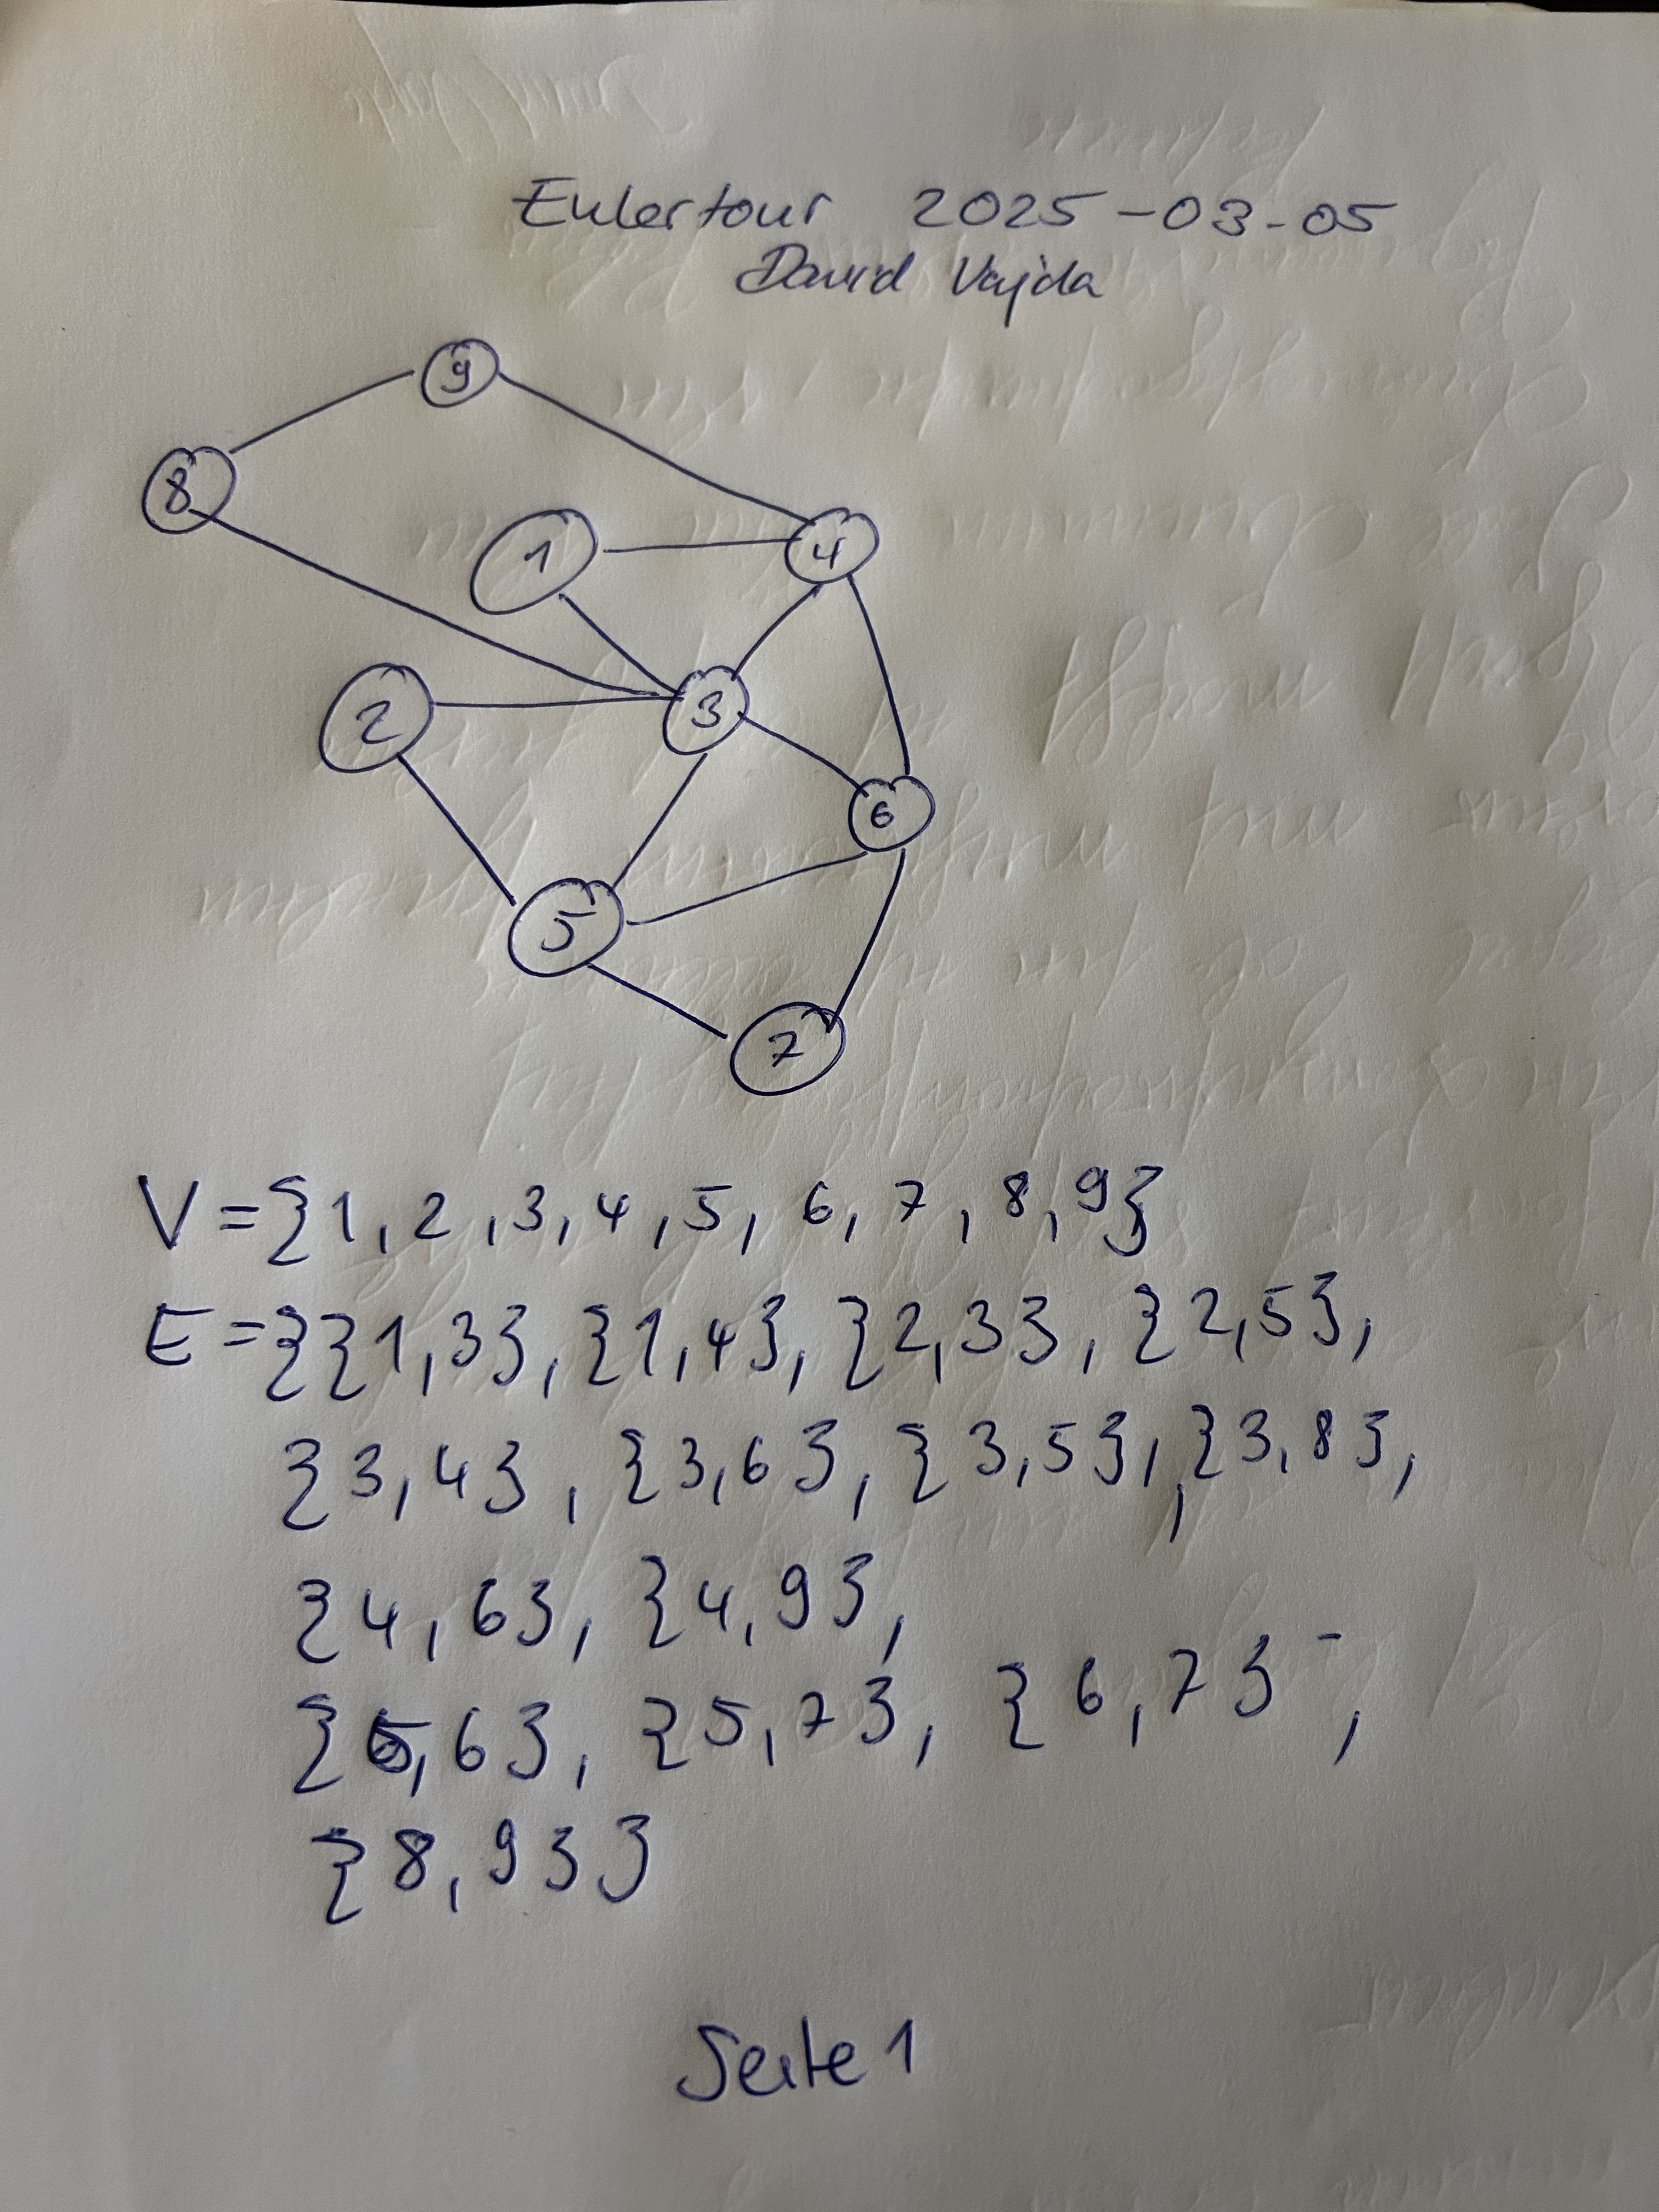 Eulertour 2025-03-05
David Vajda
9
8
1
4
2
3
5
6
7
V = {1, 2, 3, 4, 5, 6, 7, 8, 9}
E = {{1, 3}, {1, 4}, {2, 3}, {2, 5},
{3, 4}, {3, 6}, {3, 5}, {3, 8},
{4, 6}, {4, 9},
{5, 6}, {5, 7}, {6, 7},
{8, 9}}
Seite 1